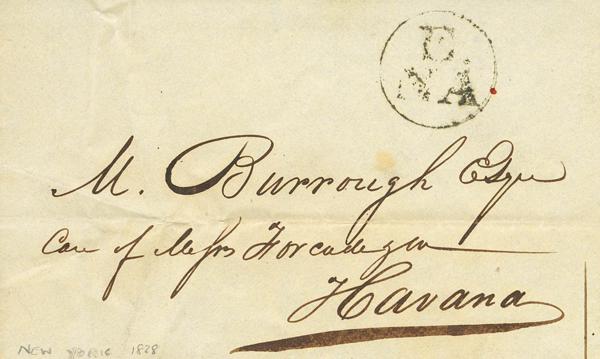 E.
NA
M. Burrough Esqre
Care of Messrs Forcade y Ca
Havana
NEW YORK 1828